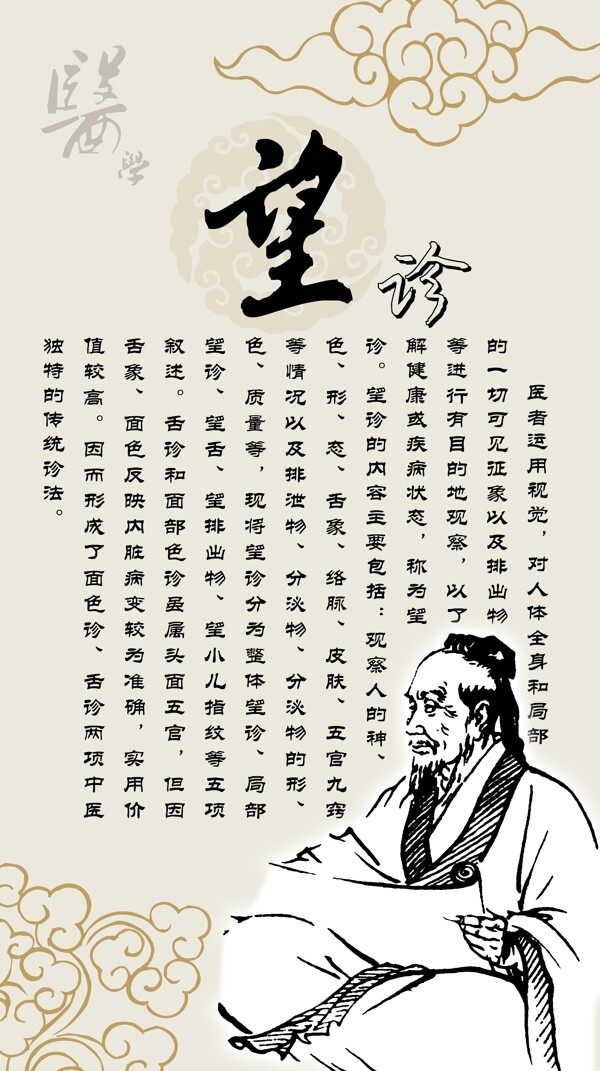 醫學
望诊
医者运用视觉，对人体全身和局部
的一切可见征象以及排出物
等进行有目的地观察，以了
解健康或疾病状态，称为望
诊。望诊的内容主要包括：观察人的神、
色、形、态、舌象、络脉、皮肤、五官九窍
等情况以及排泄物、分泌物、分泌物的形、
色、质量等，现将望诊分为整体望诊、局部
望诊、望舌、望排出物、望小儿指纹等五项
叙述。舌诊和面部色诊虽属头面五官，但因
舌象、面色反映内脏病变较为准确，实用价
值较高。因而形成了面色诊、舌诊两项中医
独特的传统诊法。